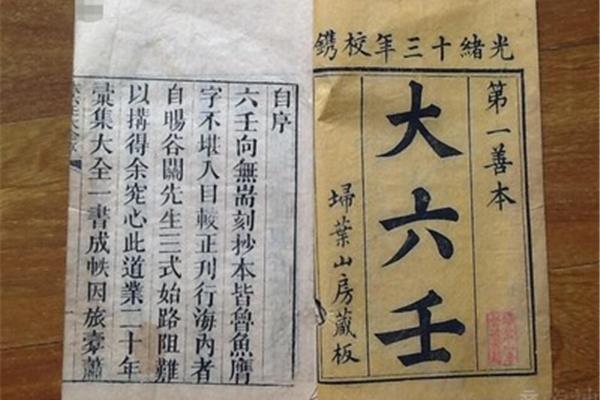 光緒十三年校鐫
第一善本
大六壬
埽葉山房藏板
自序
六壬向無耑刻抄本皆魯魚膺
字不堪入目較正刋行海內者
自暘谷關先生三式始路阻難
以搆得余究心此道業二十年
彙集大全一書成帙因旅橐蕭